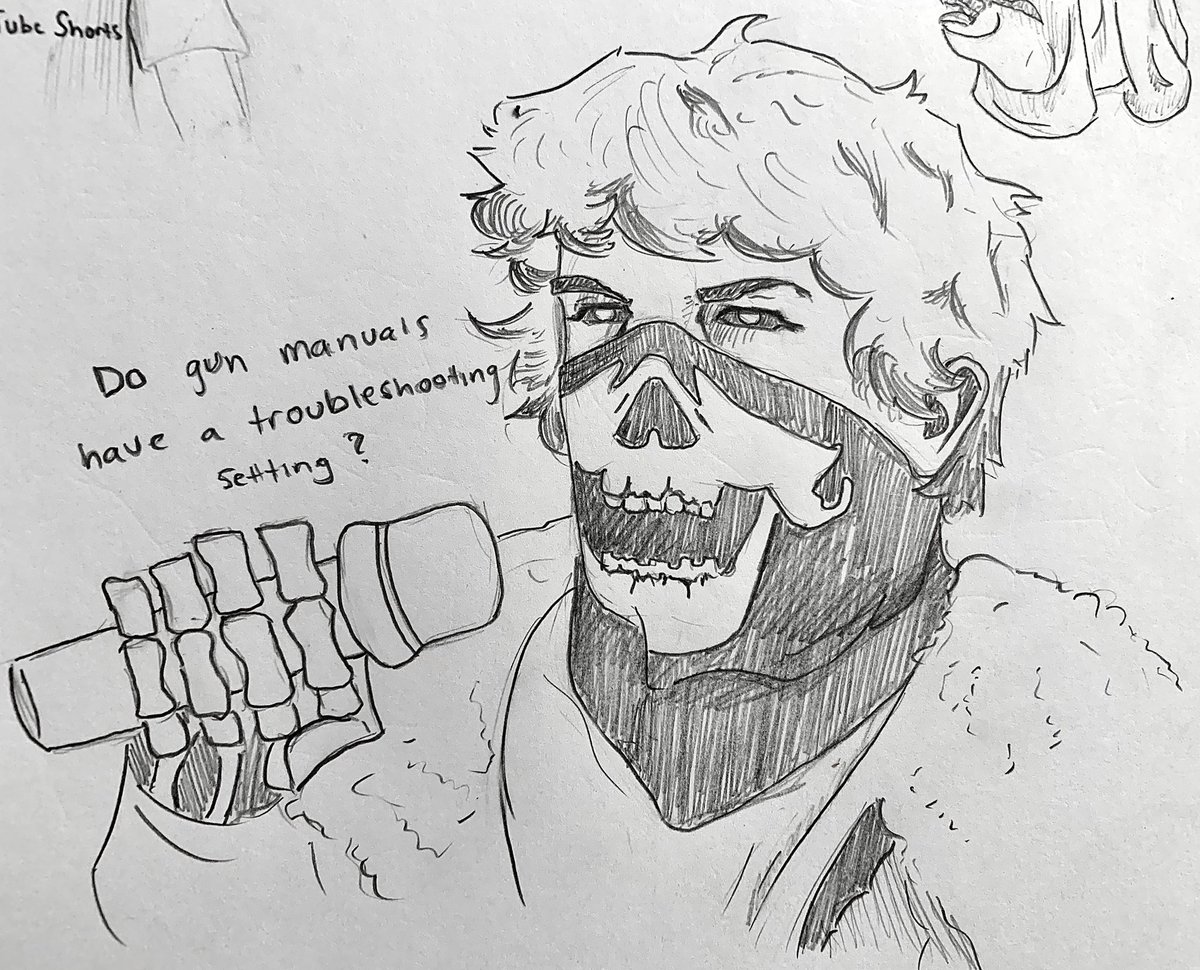 Tube Shorts
Do gun manuals
have a troubleshooting
setting?